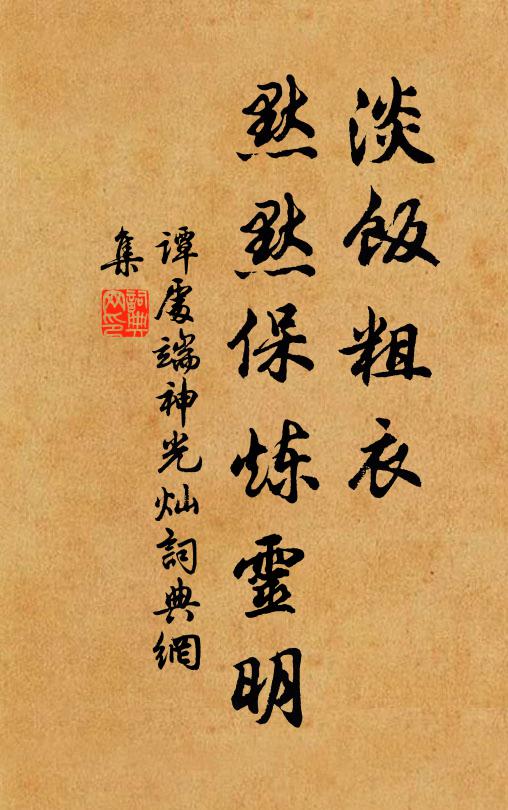 淡飯粗衣
默默保炼靈明
譚處端神光灿詞典網
集
詞典
网印